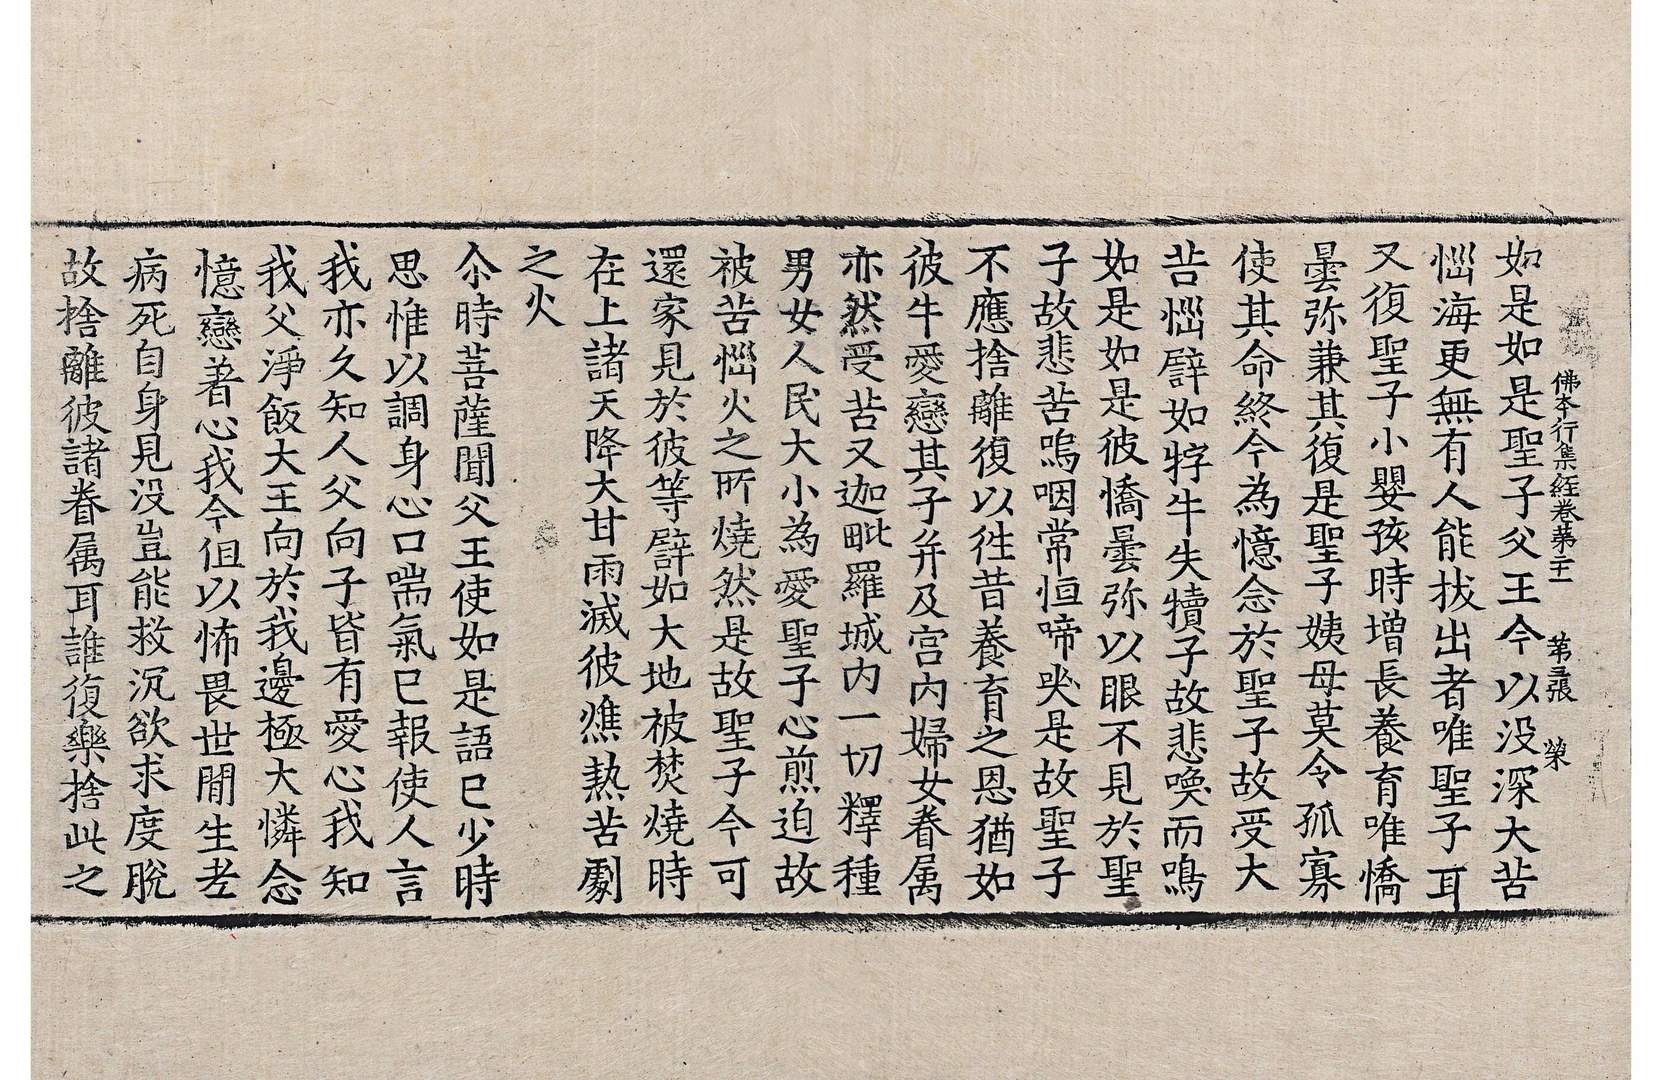 佛本行集經卷第二十一 第五張 榮
如是如是聖子父王今以没深大苦
惱海更無有人能拔出者唯聖子耳
又復聖子小嬰孩時增長養育唯憍
曇弥兼其復是聖子姨母莫令孤寡
使其命終今為憶念於聖子故受大
苦惱譬如牸牛失犢子故悲喚而鳴
如是如是彼憍曇弥以眼不見於聖
子故悲苦嗚咽常恒啼哭是故聖子
不應捨離復以往昔養育之恩猶如
彼牛愛戀其子并及宫内婦女眷属
亦然受苦又迦毗羅城内一切釋種
男女人民大小為愛聖子心煎迫故
被苦惱火之所燒然是故聖子今可
還家見於彼等譬如大地被焚燒時
在上諸天降大甘雨滅彼燋熱苦劇
之火
尒時菩薩聞父王使如是語已少時
思惟以調身心口喘氣已報使人言
我亦久知人父向子皆有愛心我知
我父淨飯大王向於我邊極大憐念
憶戀著心我今但以怖畏世間生老
病死自身見没豈能救沉欲求度脫
故捨離彼諸眷属耳誰復樂捨此之